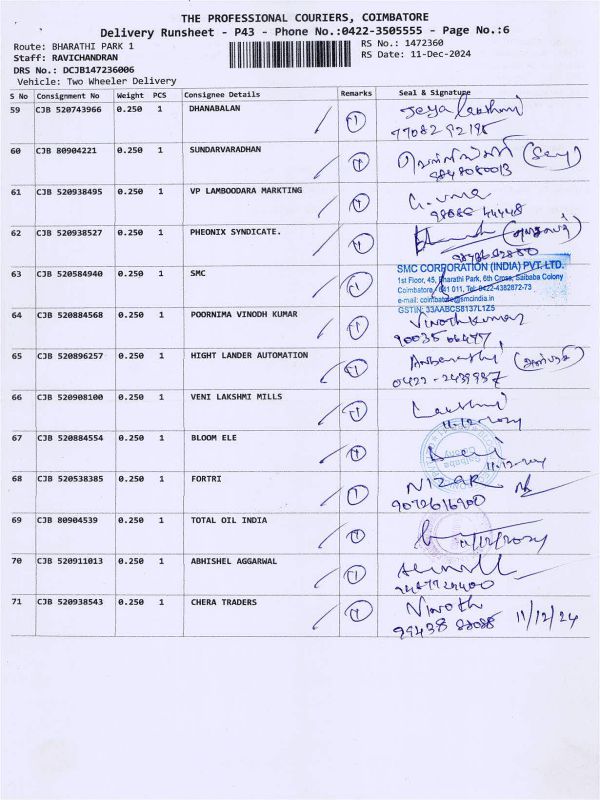 THE PROFESSIONAL COURIERS, COIMBATORE
Delivery Runsheet - P43 - Phone No.:0422-3505555 - Page No.:6
Route: BHARATHI PARK 1
RS No.: 1472360
Staff: RAVICHANDRAN
RS Date: 11-Dec-2024
DRS No.: DCJB147236006
Vehicle: Two Wheeler Delivery
S No Consignment No Weight PCS Consignee Details Remarks Seal & Signature
59 CJB 520743966 0.250 1 DHANABALAN
60 CJB 80904221 0.250 1 SUNDARVARADHAN
61 CJB 520938495 0.250 1 VP LAMBOODARA MARKTING
62 CJB 520938527 0.250 1 PHEONIX SYNDICATE.
63 CJB 520584940 0.250 1 SMC
SMC CORPORATION (INDIA) PVT. LTD.
1st Floor, 45, Bharathi Park, 6th Cross, Saibaba Colony
Coimbatore - 641 011, Tel: 0422-4382872-73
e-mail: coimbatore@smcindia.in
GSTIN: 33AABCS8137L1Z5
64 CJB 520884568 0.250 1 POORNIMA VINODH KUMAR Vinoth kumar
65 CJB 520896257 0.250 1 HIGHT LANDER AUTOMATION
66 CJB 520908100 0.250 1 VENI LAKSHMI MILLS Lakshmi
11-12-2024
67 CJB 520884554 0.250 1 BLOOM ELE
68 CJB 520538385 0.250 1 FORTRI NIZAR
9072616900
69 CJB 80904539 0.250 1 TOTAL OIL INDIA 11/12/2024
70 CJB 520911013 0.250 1 ABHISHEL AGGARWAL
71 CJB 520938543 0.250 1 CHERA TRADERS Vinoth
99438 88088 11/12/24